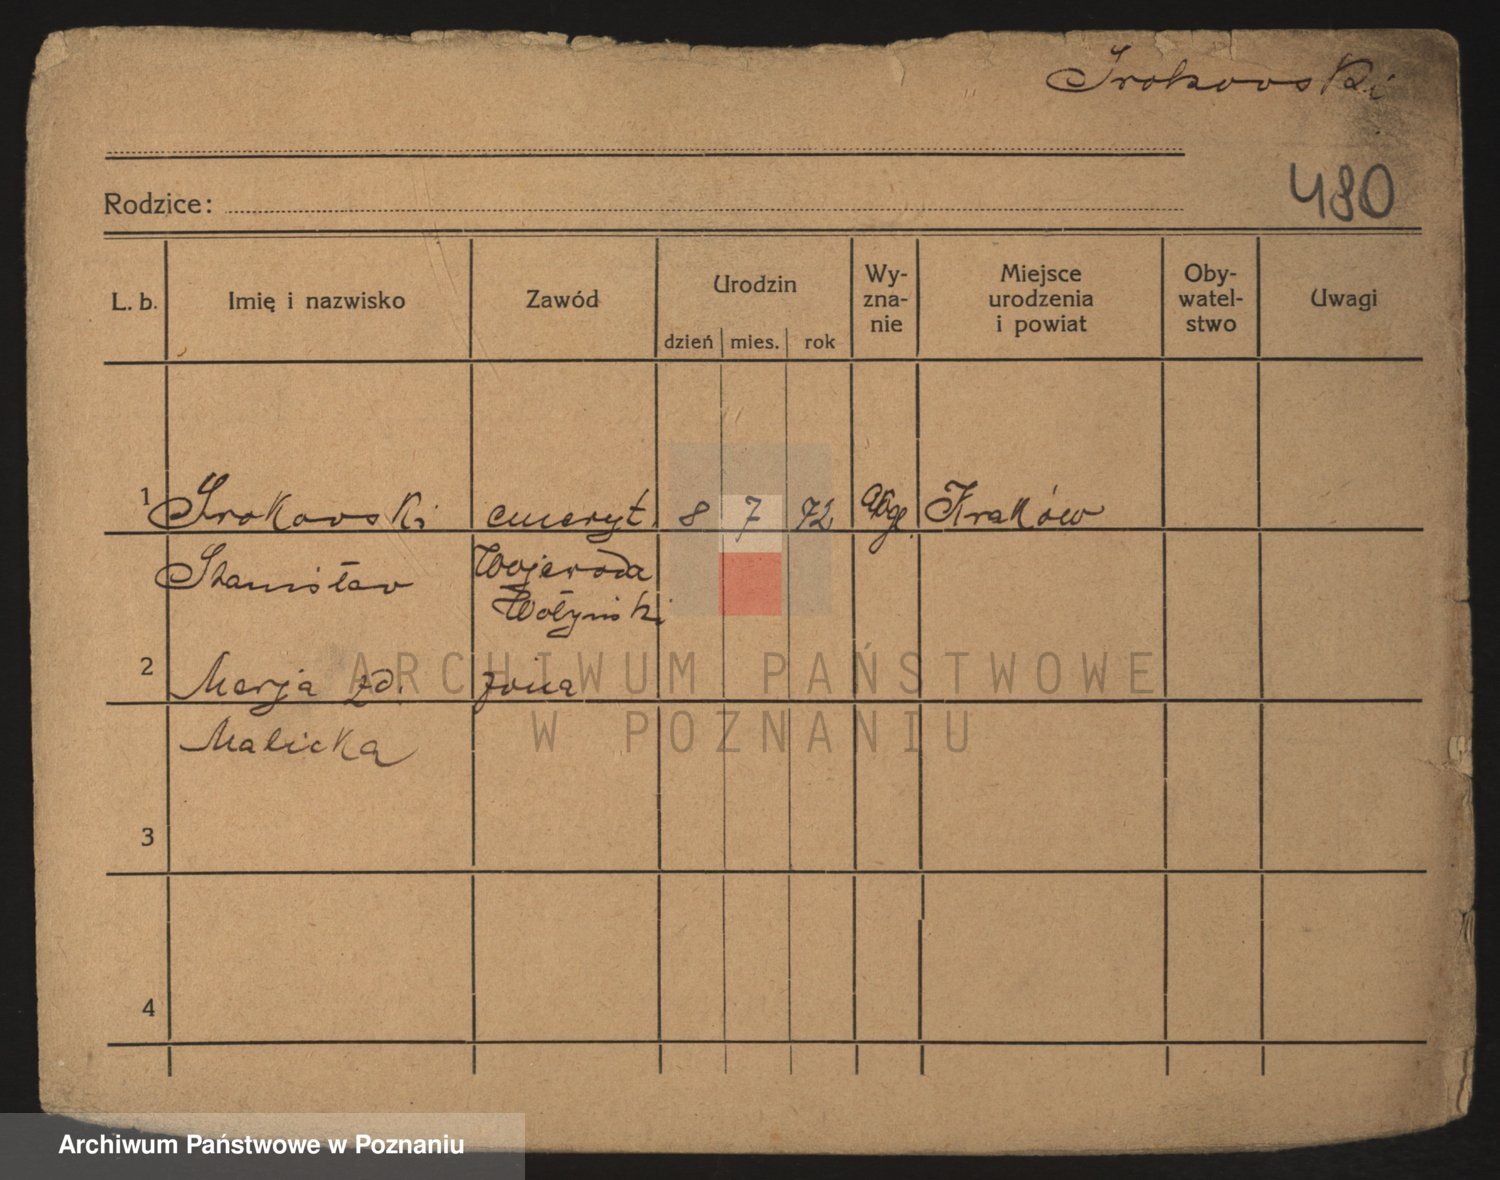 Srokowski
480
Rodzice:
L. b. Imię i nazwisko Zawód Urodzin dzień mies. rok Wy-zna-nie Miejsce urodzenia i powiat Oby-watel-stwo Uwagi
1 Srokowski emeryt 8 7 72 Kraków
Stanisław Wojewoda
Wołyński
2 Marja zd. żona
Malicka
3
4
ARCHIWUM PAŃSTWOWE
W POZNANIU
Archiwum Państwowe w Poznaniu